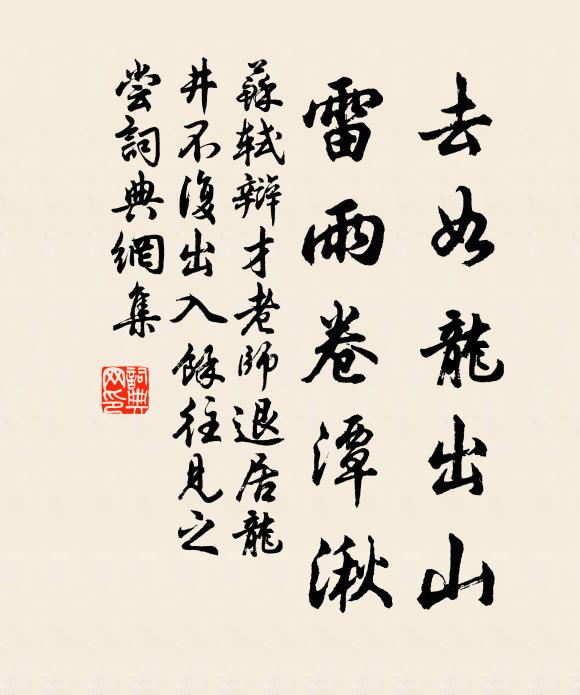 去如龍出山
雷雨卷潭湫
蘇軾辯才老師退居龍
井不復出入餘往見之
尝詞典網集
詞典
网印